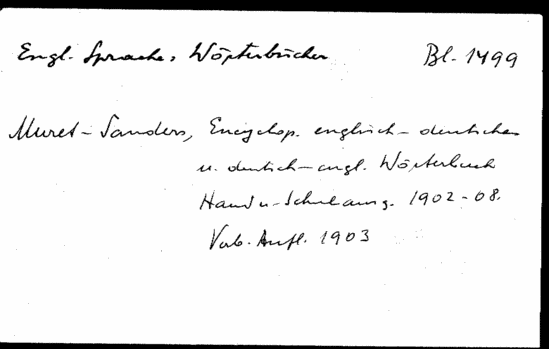 Engl. Sprache, Wörterbücher Bl. 1499
Muret-Sanders, Encyclop. englisch-deutsches
u. deutsch-engl. Wörterbuch
Hand u-Schulausg. 1902-08.
Verb. Aufl. 1903